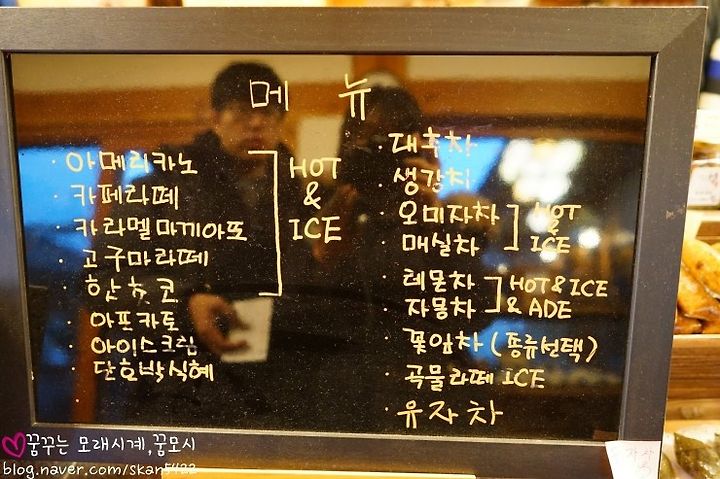 메뉴
· 아메리카노
· 카페라떼
· 카라멜마끼아또
· 고구마라떼
· 핫쵸코
HOT
&
ICE
· 아포카토
· 아이스크림
· 단호박식혜
·
· 대추차
· 생강차
· 오미자차
· 매실차
HOT
&
ICE
· 레몬차
· 자몽차
HOT & ICE
& ADE
· 꽃잎차 (종류선택)
· 곡물라떼 ICE
· 유자차
꿈꾸는 모래시계,꿈모시
blog.naver.com/skan5422